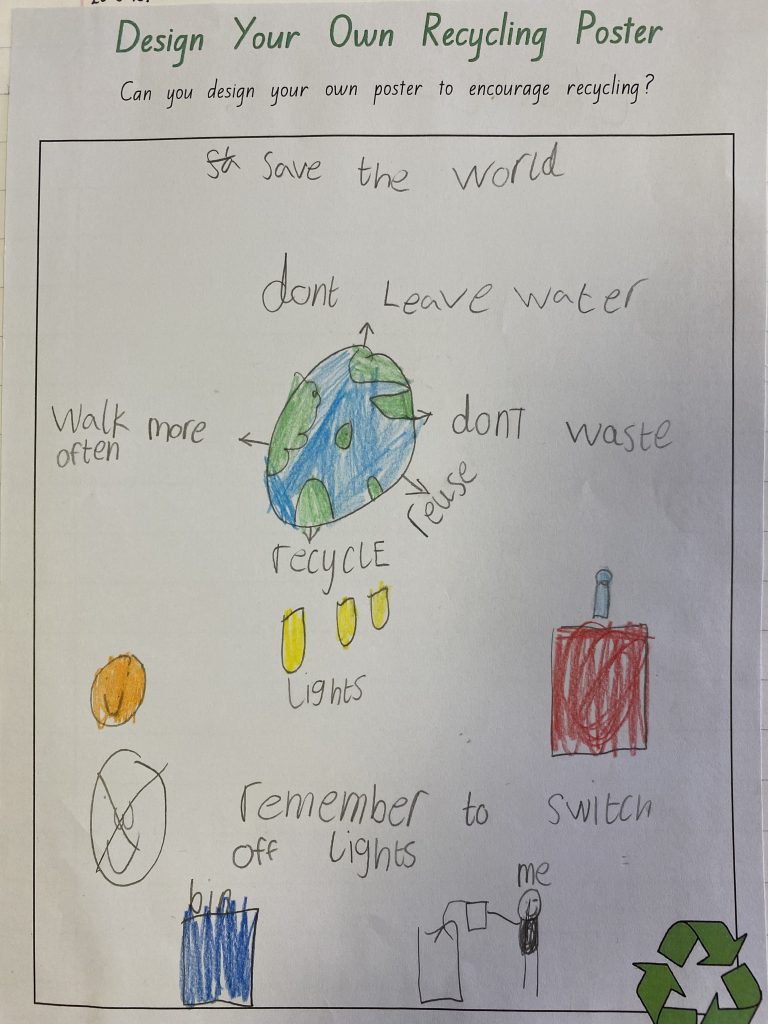 Design Your Own Recycling Poster
Can you design your own poster to encourage recycling?
Save the world
dont Leave water
walk more
often
dont waste
reuse
recycle
Lights
remember to switch
off lights
bin
me